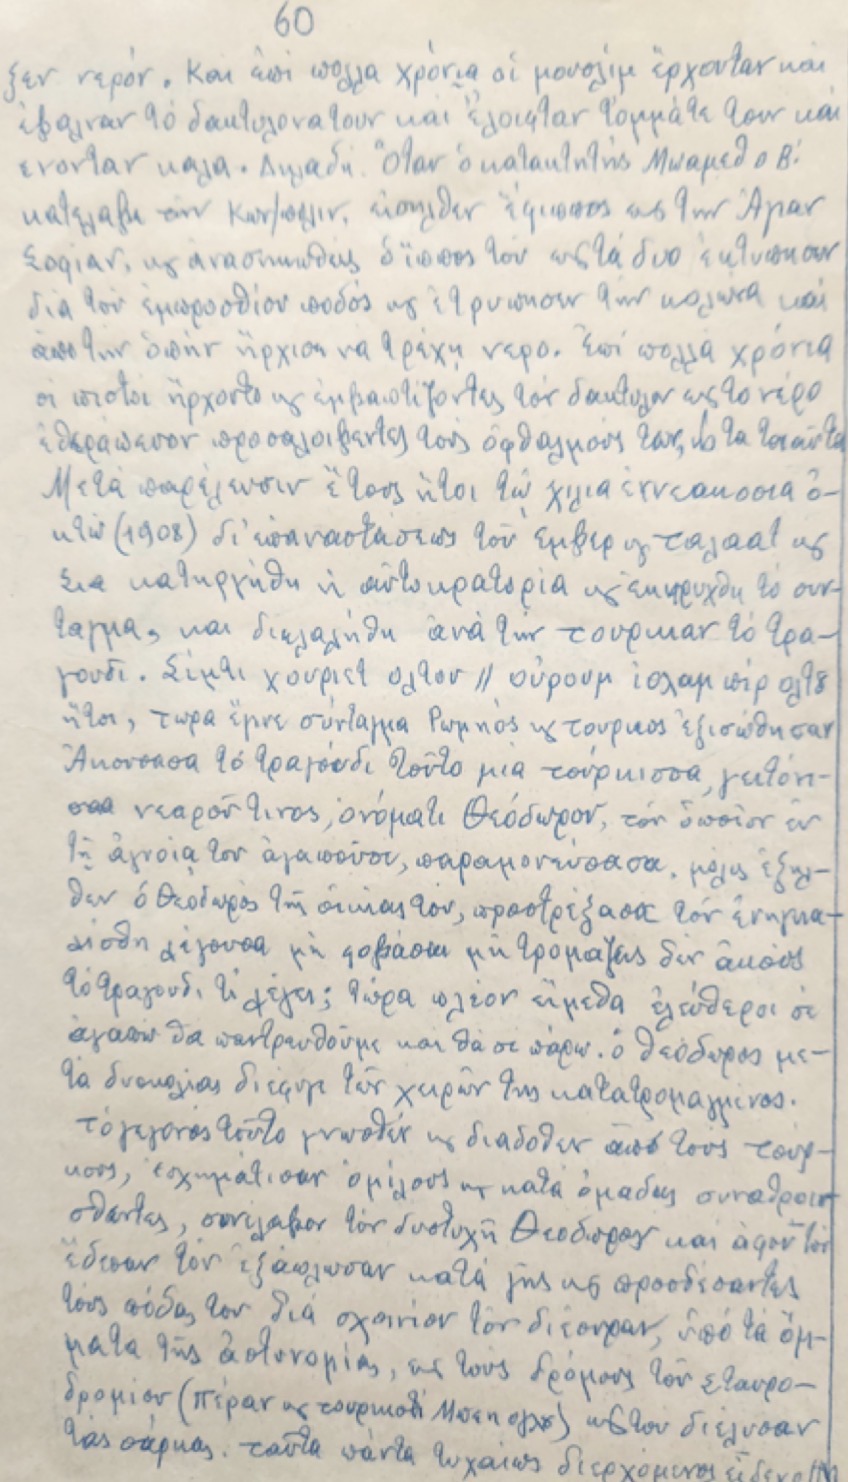 60
ξεν νερόν. Και ἐπί πολλα χρόνια οἱ μουσλίμ ἔρχονταν και
ἐβαλναν τό δακτυλονατουν και ἔλοιφταν τομμάτε τουν και
ενονταν καλα. Δηλαδή. Ὅταν ὁ κατακτητής Μωαμεθ ο Β!
κατελαβε την Κων/πολιν, εισηλθεν ἔφιππος εις την Ἁγιαν
Σοφιαν, κ ἀνασηκωθεις ὁ ἵππος του εις τά δυο ἐκτυπησεν
διά τοῦ ἐμπροσθίου ποδός κ ἐτρυπησεν την κολωνα και
ἀπο την ὀπήν ἤρχισε να τρέχῃ νερο. Ἐπί πολλά χρόνια
οι πιστοι ἤρχοντο κ ἐμβαπτίζοντες τόν δακτυλον εις το νέρο
ἐθεράπευον προσαλοιβεντες τούς ὀφθαλμούς των, τα τοιαῦτα
Μετά παρέλευσιν ἔτους ἤτοι τῷ χιλια εννεακοσια ὀ-
κτώ (1908) δι' επαναστάσεως τοῦ Ἐμβερ κ ταλαατ κ
Σια κατηργήθη ἡ αὐτοκρατορία κ εκηρυχθη τό συν-
ταγμα, και διελαλήθη ἀνά τήν τουρκιαν τό τρα-
γουδι. Σίμτι χουριετ ολτου // οὔρουμ ἰσλαμ πίρ ολτȣ
ἤτοι, τωρα ἔγινε σύνταγμα Ρωμηός κ τουρκος ἐξισώθησαν
Ἀκουσασα τό τραγούδι τοῦτο μία τούρκισσα, γειτόνι-
σσα νεαροῦ τινος, ὀνόματι Θεόδωρου, τόν ὁποῖον ἐν
τῇ ἀγνοίᾳ του ἀγαποῦσε, παραμονεύσασα, μόλις ἐξηλ-
θεν ὁ Θεόδωρος τῆς οἰκίας του, προστρέξασα τόν ἐνηγκα-
λίσθη λέγουσα μή φοβᾶσαι μή τρομαζεις δεν ἀκούς
τό τραγουδι τί λέγει; τώρα πλέον εἴμεθα ἐλεύθεροι σέ
ἀγαπω θα παντρευθοῦμε και θά σε πάρω. ὁ Θεόδωρος με-
τά δυσκολίας διέφυγε τῶν χειρῶν της κατατρομαγμένος.
τό γεγονός τοῦτο γνωσθέν κ διαδοθεν ἀπό τούς τούρ-
κους, ἐσχημάτισαν ὁμίλους κ κατά ὁμάδας συναθροι-
σθέντες, συνέλαβον τόν δυστυχῆ Θεόδωρον και ἀφοῦ τόν
ἔδεσαν τόν ἐξάπλωσαν κατά γῆς κ προσδέσαντες
τούς πόδας του διά σχοινίου τόν διέσυραν, ὑπό τά ὄμ-
ματα τῆς ἀστυνομίας, εις τούς δρόμους τοῦ σταυρο-
δρομίου (Πέραν κ τουρκιστί Μπεη ογλȣ) εως του διέλυσαν
τάς σάρκας. ταῦτα πάντα τυχαίως διερχόμενος εἶδεν